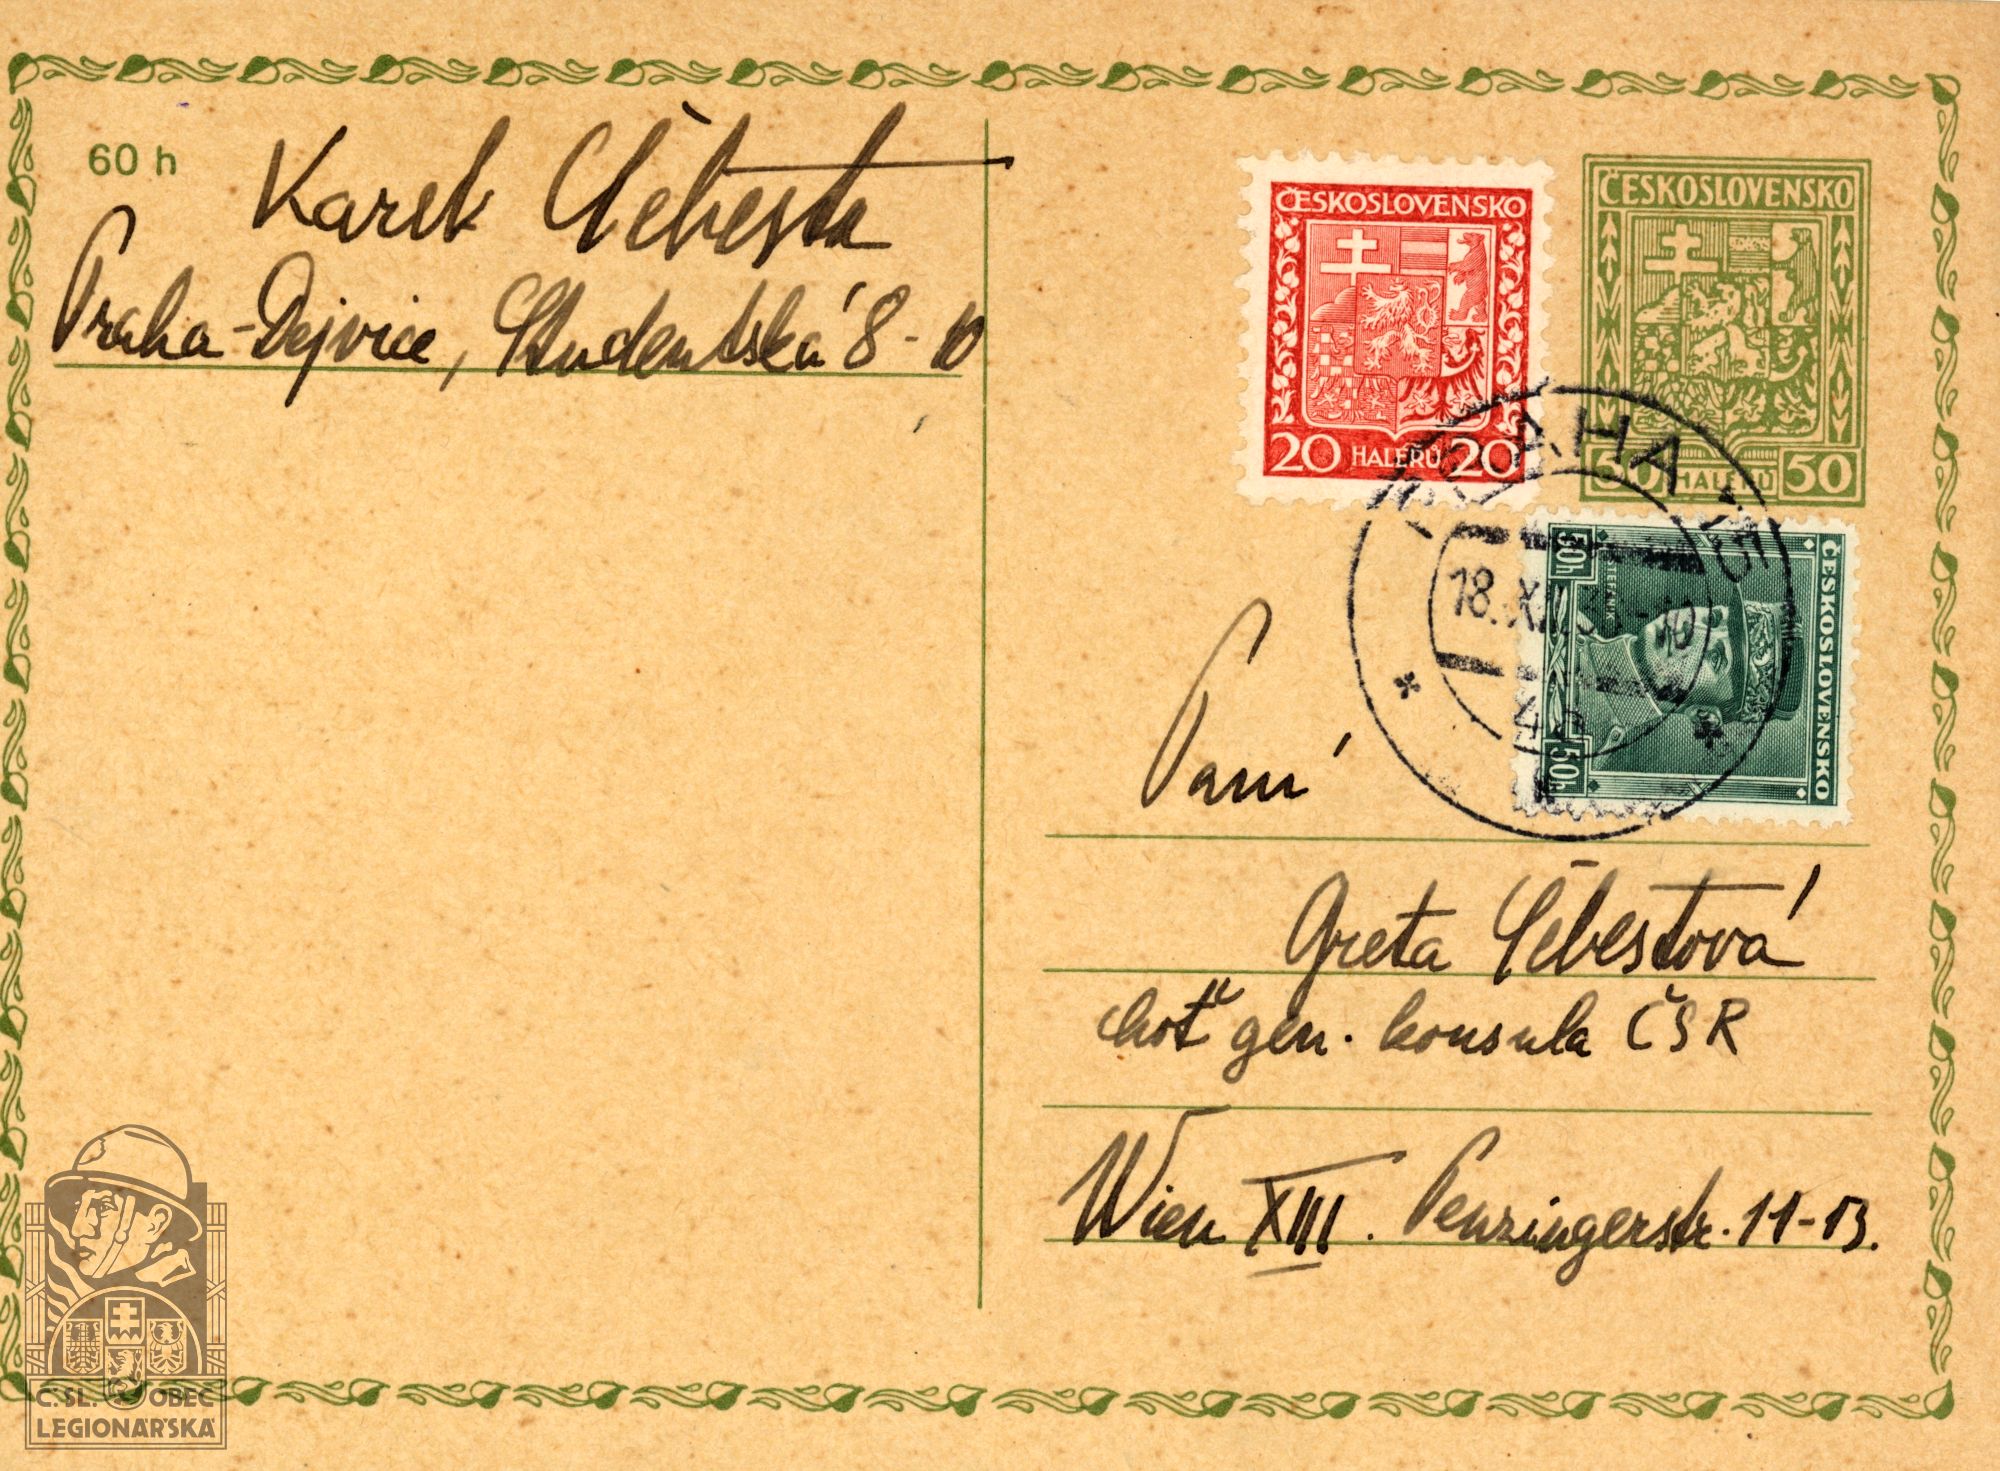 60 h
Karel Šebesta
Praha-Dejvice, Studentská 8-10
ČESKOSLOVENSKO
20 HALÉŘŮ 20
ČESKOSLOVENSKO
50 HALÉŘŮ 50
PRAHA 75
18. XII. -10
4a
ČESKOSLOVENSKO
50h
ŠTEFÁNIK
50h
Paní
Greta Šebestová
choť gen. konsula ČSR
Wien XIII. Penzingerstr. 11-13.
Č. SL. OBEC
LEGIONÁŘSKÁ